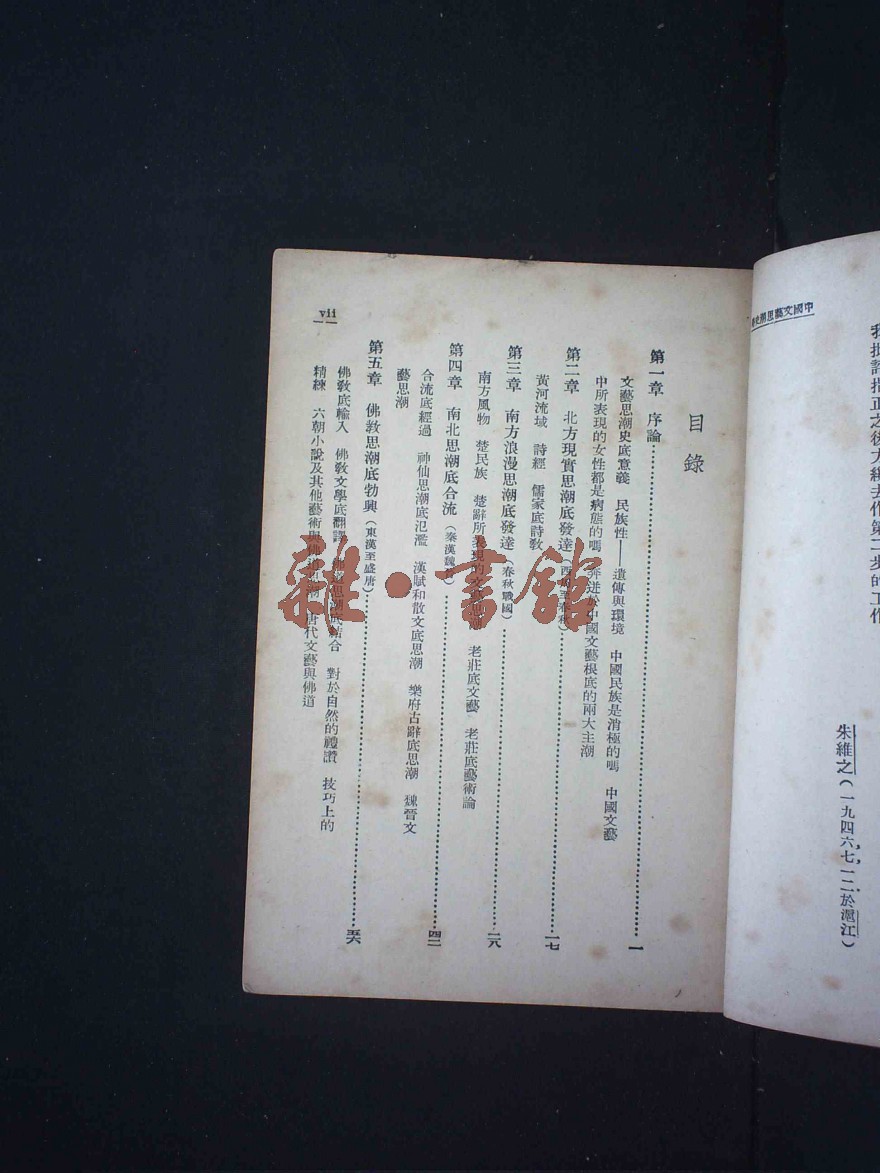 中國文藝思潮史
我批評指正之後大綱去作第二步的工作
朱維之(一九四六,七,一二,於滬江)
目錄
第一章 序論 一
文藝思潮史底意義 民族性——遺傳與環境 中國民族是消極的嗎 中國文藝
中所表現的女性都是病態的嗎 奔迸於中國文藝根底的兩大主潮
第二章 北方現實思潮底發達(西周至春秋) 一七
黃河流域 詩經 儒家底詩教
第三章 南方浪漫思潮底發達(春秋戰國) 二八
南方風物 楚民族 楚辭所表現的文藝思潮 老莊底文藝 老莊底藝術論
第四章 南北思潮底合流(秦漢魏晉) 四二
合流底經過 神仙思潮底氾濫 漢賦和散文底思潮 樂府古辭底思潮 魏晉文
藝思潮
第五章 佛教思潮底勃興(東漢至盛唐) 五六
佛教底輸入 佛教文學底翻譯 佛道思潮底結合 對於自然的禮讚 技巧上的
精練 六朝小說及其他藝術與佛道思潮 唐代文藝與佛道
vii
雜·書館